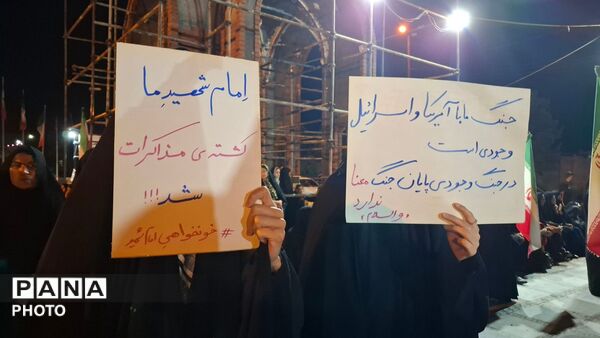 اِمام شهیدِ ما
کشته‌ی مذاکرات
شد!!!
#خونخواهی امام شهید
جنگ ما با آمریکا و اسرائیل
وجودی است
در جنگ وجودی پایان جنگ معنا
ندارد
والسلام.
PANA
PHOTO